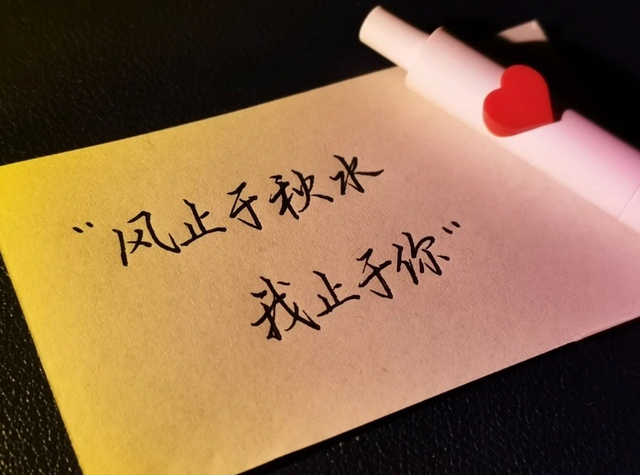 “风止于秋水
我止于你”